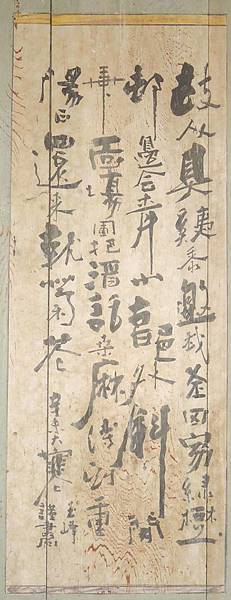 故人具雞黍邀我至田家綠樹
邨邊合青山郭外斜開
軒面場圃把酒話桑麻待到重
陽日還來就菊花 辛未大寒
玉峰